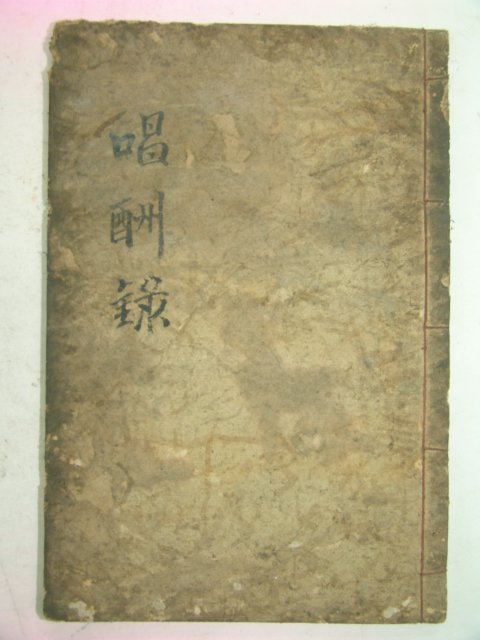 唱酬錄